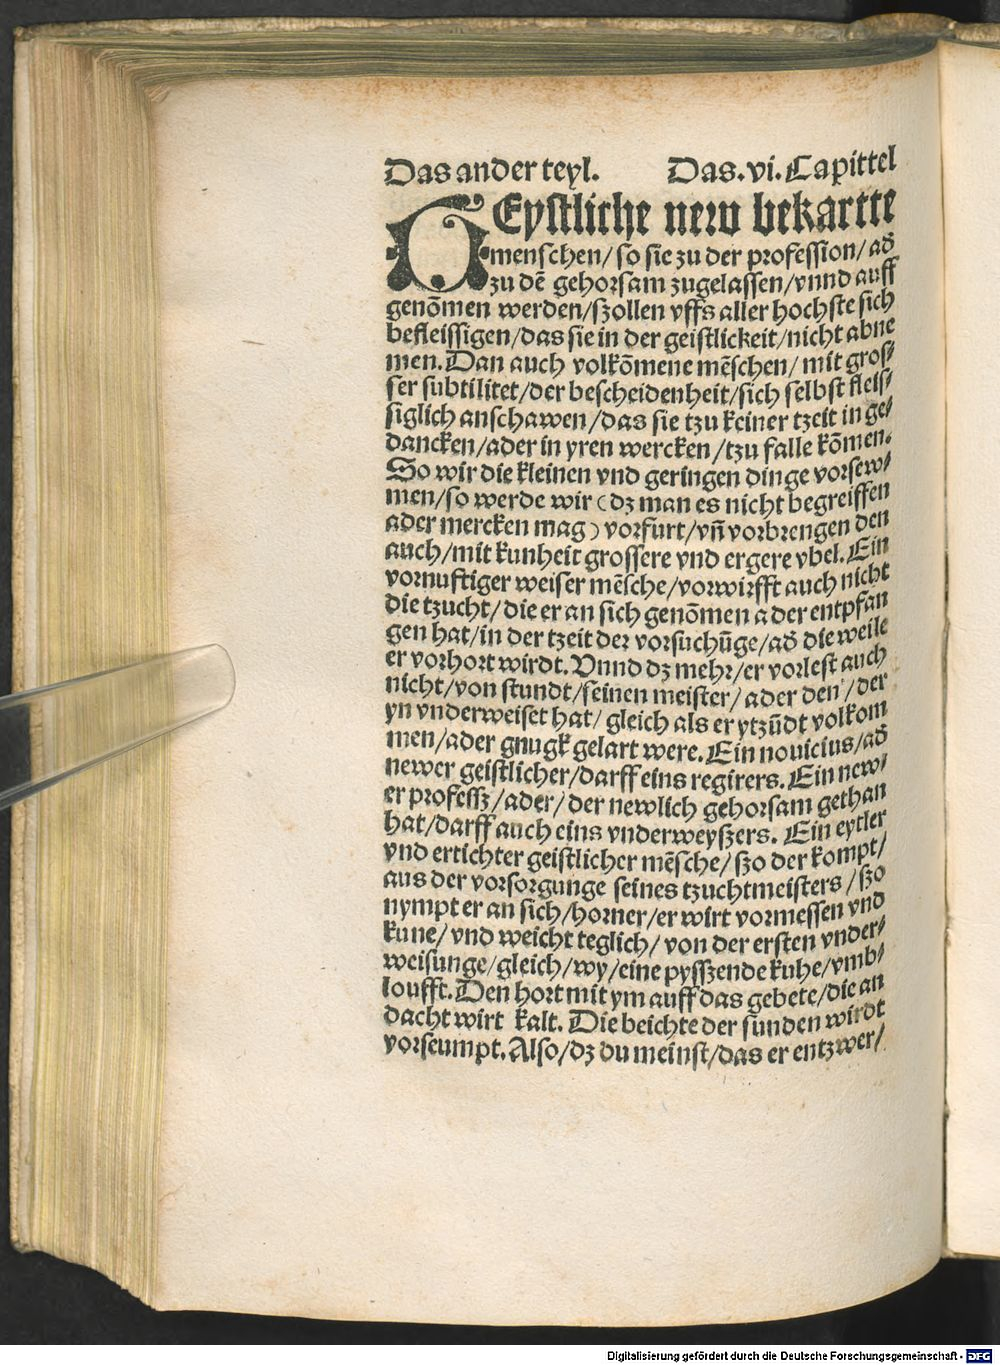 Das ander teyl. Das. vi. Capittel
GEystliche new bekartte
menschen/ so sie zu der profession/ ad̄
zu dē gehorsam zugelassen/vnnd auff
genōmen werden/szollen vffs aller hochste sich
befleissigen/das sie in der geistlickeit/nicht abne
men. Dan auch volkōmene mēschen/ mit gros⸗
ser subtilitet/der bescheidenheit/sich selbst fleis⸗
siglich anschawen/das sie tzu keiner tzeit in ge⸗
dancken/ader in yren wercken/tzu falle kōmen.
So wir die kleinen vnd geringen dinge vorsew⸗
men/so werde wir (dz man es nicht begreiffen
ader mercken mag) vorfurt/vn̄ vorbrengen den
auch/mit kunheit grossere vnd ergere vbel. Ein
vornuftiger weiser mēsche/vorwirfft auch nicht
die tzucht/die er an sich genōmen ader entpfan
gen hat/in der tzeit der vorsuchūge/ad̄ die weile
er vorhort wirdt. Vnnd dz mehr/er vorlest auch
nicht/von stundt/seinen meister/ ader den/der
yn vnderweiset hat/ gleich als er ytzūdt volkom
men/ader gnugk gelart were. Ein nouicius/ad̄
newer geistlicher/darff eins regirers. Ein new⸗
er professz/ader/der newlich gehorsam gethan
hat/darff auch eins vnderweyszers. Ein eytler
vnd ertichter geistlicher mēsche/szo der kompt/
aus der vorsorgunge seines tzuchtmeisters/szo
nympt er an sich/horner/er wirt vormessen vnd
kune/ vnd weicht teglich/ von der ersten vnder⸗
weisunge/gleich/wy/eine pysszende kuhe/vmb⸗
loufft. Den hort mit ym auff das gebete/die an
dacht wirt kalt. Die beichte der sunden wirdt
vorseumpt. Also/dz du meinst/das er entzwer/
Digitalisierung gefördert durch die Deutsche Forschungsgemeinschaft - DFG